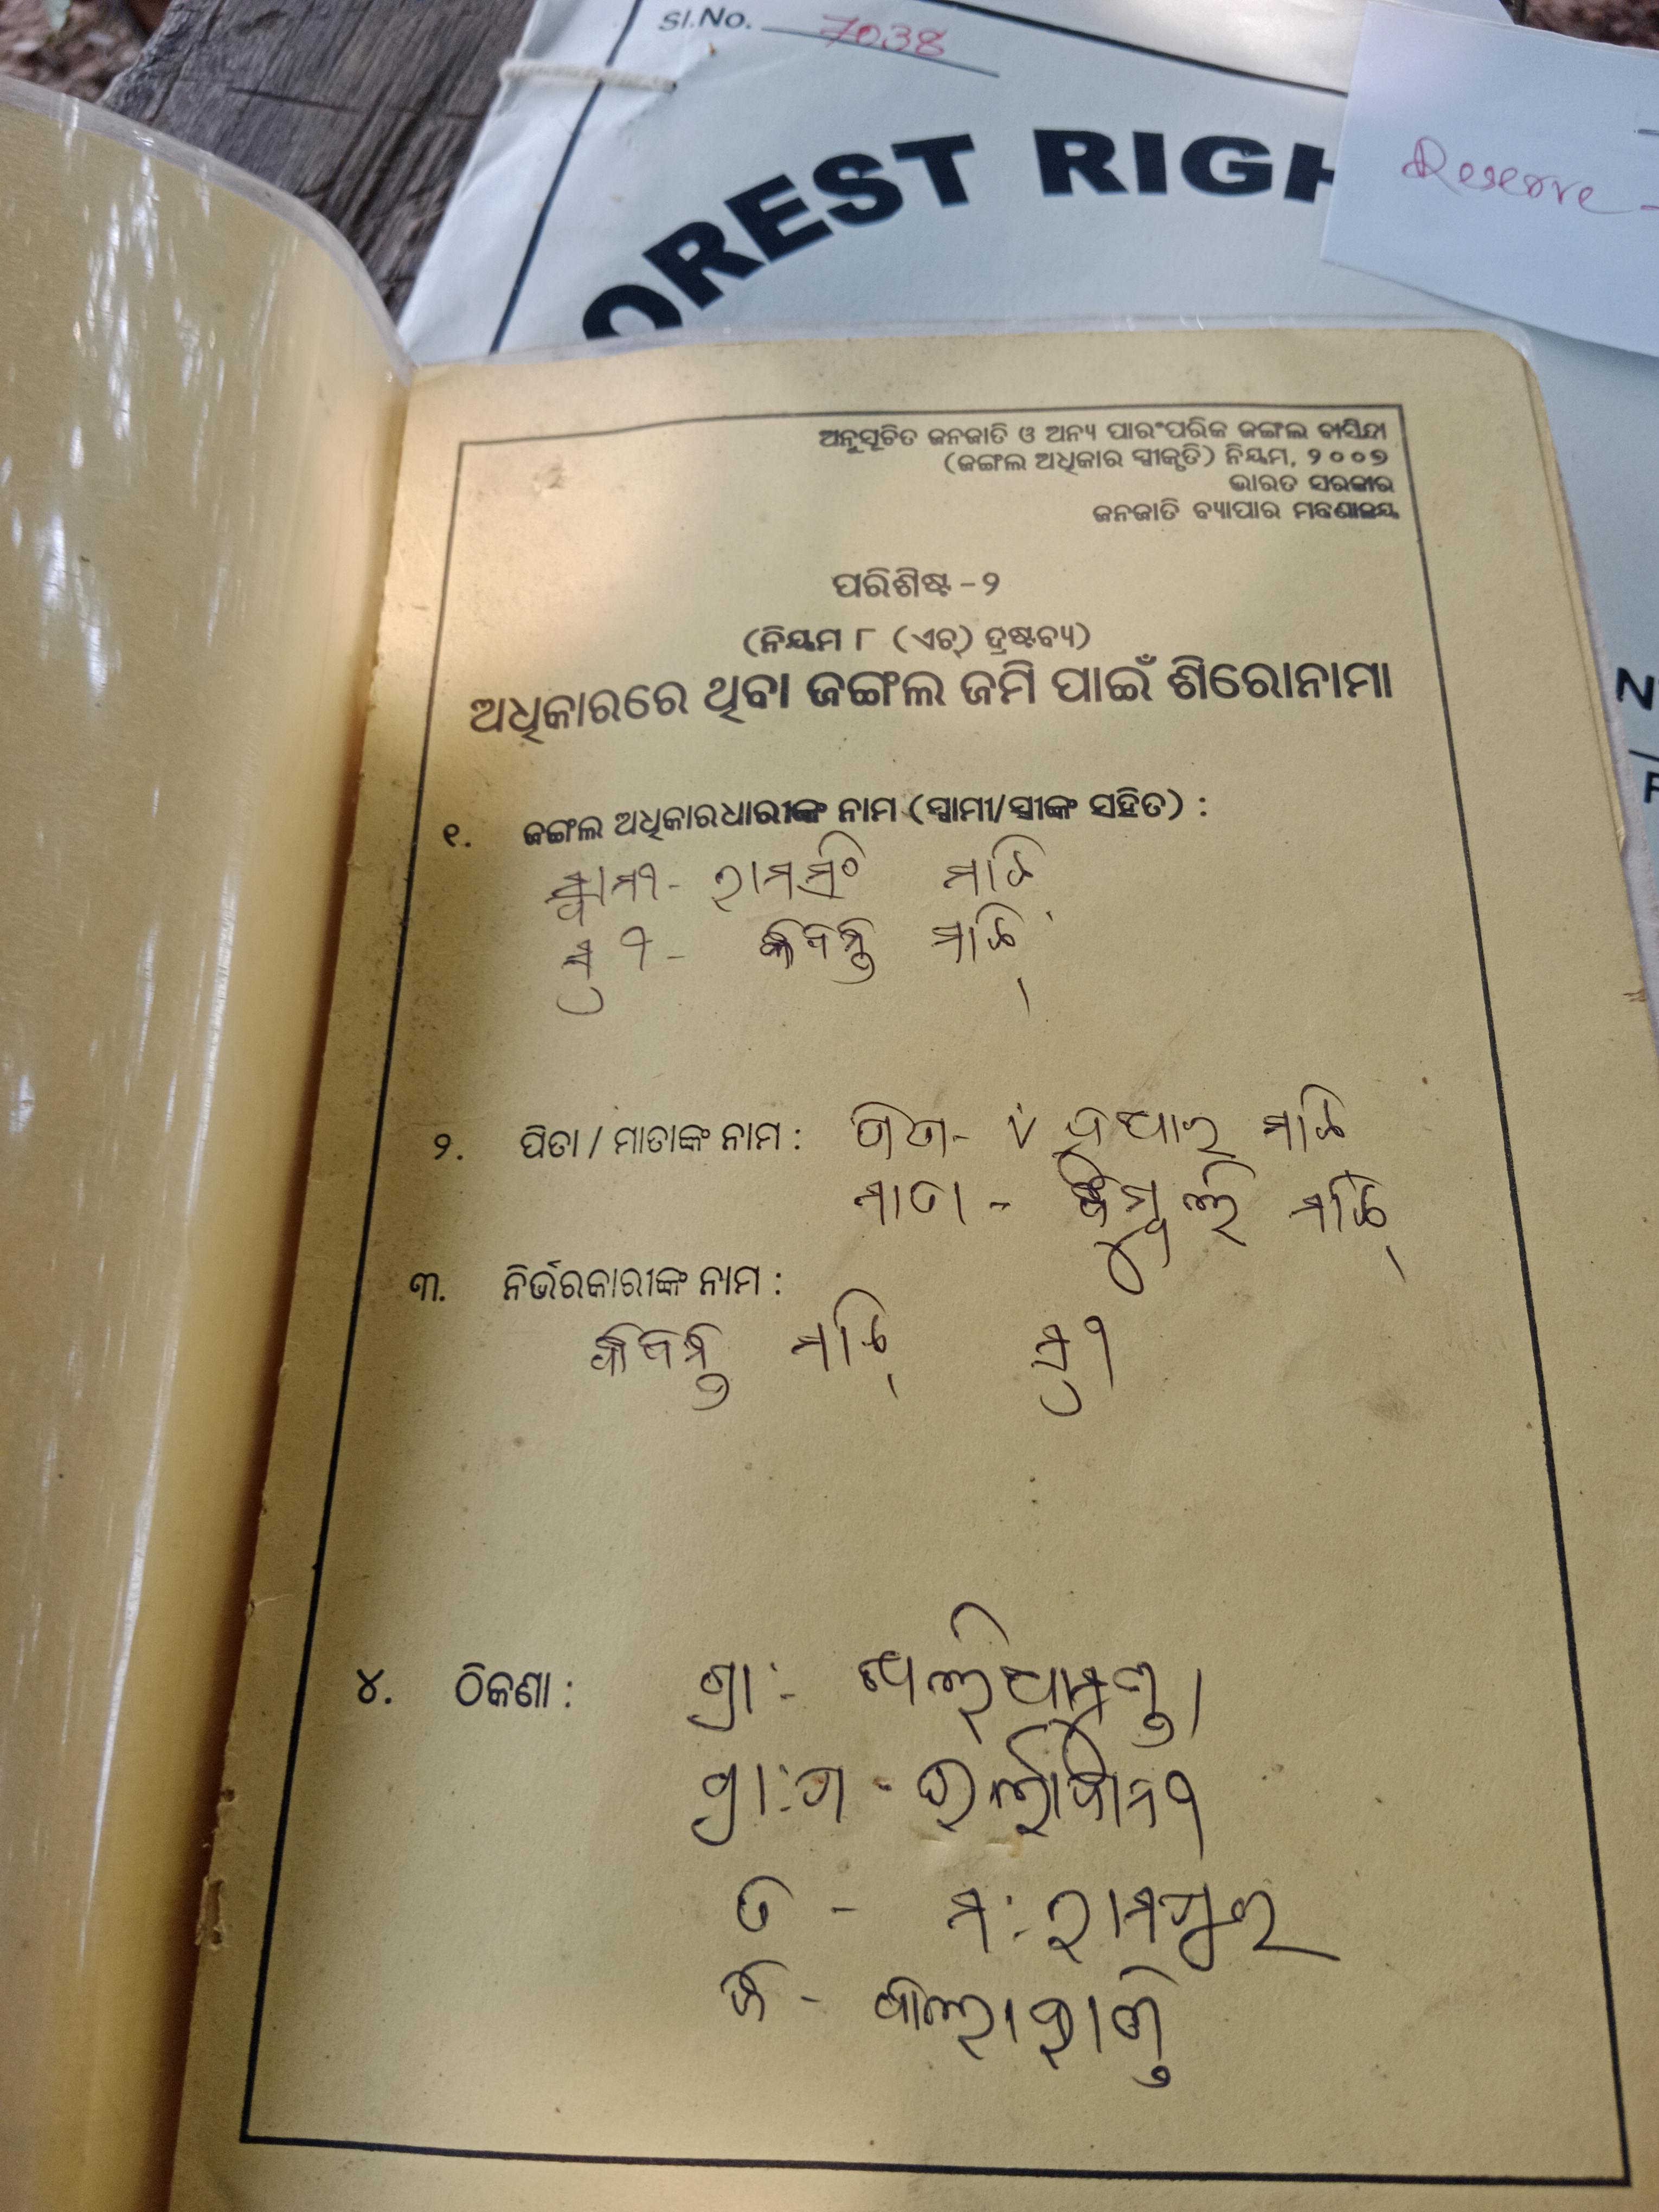 Sl.No. 7038
OREST RIGH
Reserve -
ଅନୁସୂଚିତ ଜନଜାତି ଓ ଅନ୍ୟ ପାରଂପରିକ ଜଙ୍ଗଲ ବାସିନ୍ଦା
(ଜଙ୍ଗଲ ଅଧିକାର ସ୍ୱୀକୃତି) ନିୟମ, ୨୦୦୭
ଭାରତ ସରକାର
ଜନଜାତି ବ୍ୟାପାର ମନ୍ତ୍ରଣାଳୟ
ପରିଶିଷ୍ଟ - ୨
(ନିୟମ ୮ (ଏଚ୍) ଦ୍ରଷ୍ଟବ୍ୟ)
ଅଧିକାରରେ ଥିବା ଜଙ୍ଗଲ ଜମି ପାଇଁ ଶିରୋନାମା
୧. ଜଙ୍ଗଲ ଅଧିକାରଧାରୀଙ୍କ ନାମ (ସ୍ୱାମୀ/ସ୍ତ୍ରୀଙ୍କ ସହିତ) :
ସ୍ୱାମୀ - ରାମସିଂ ମାଝି
ସ୍ତ୍ରୀ - ମାଝି
୨. ପିତା / ମାତାଙ୍କ ନାମ : ପିତା - ମାଝି
ମାତା - ମାଝି
୩. ନିର୍ଭରକାରୀଙ୍କ ନାମ :
ମାଝି ସ୍ତ୍ରୀ
୪. ଠିକଣା : ଗ୍ରା :-
ଗ୍ରା : ପ -
ତ - ମ : ରାମପୁର
ଜି - କଳାହାଣ୍ଡି